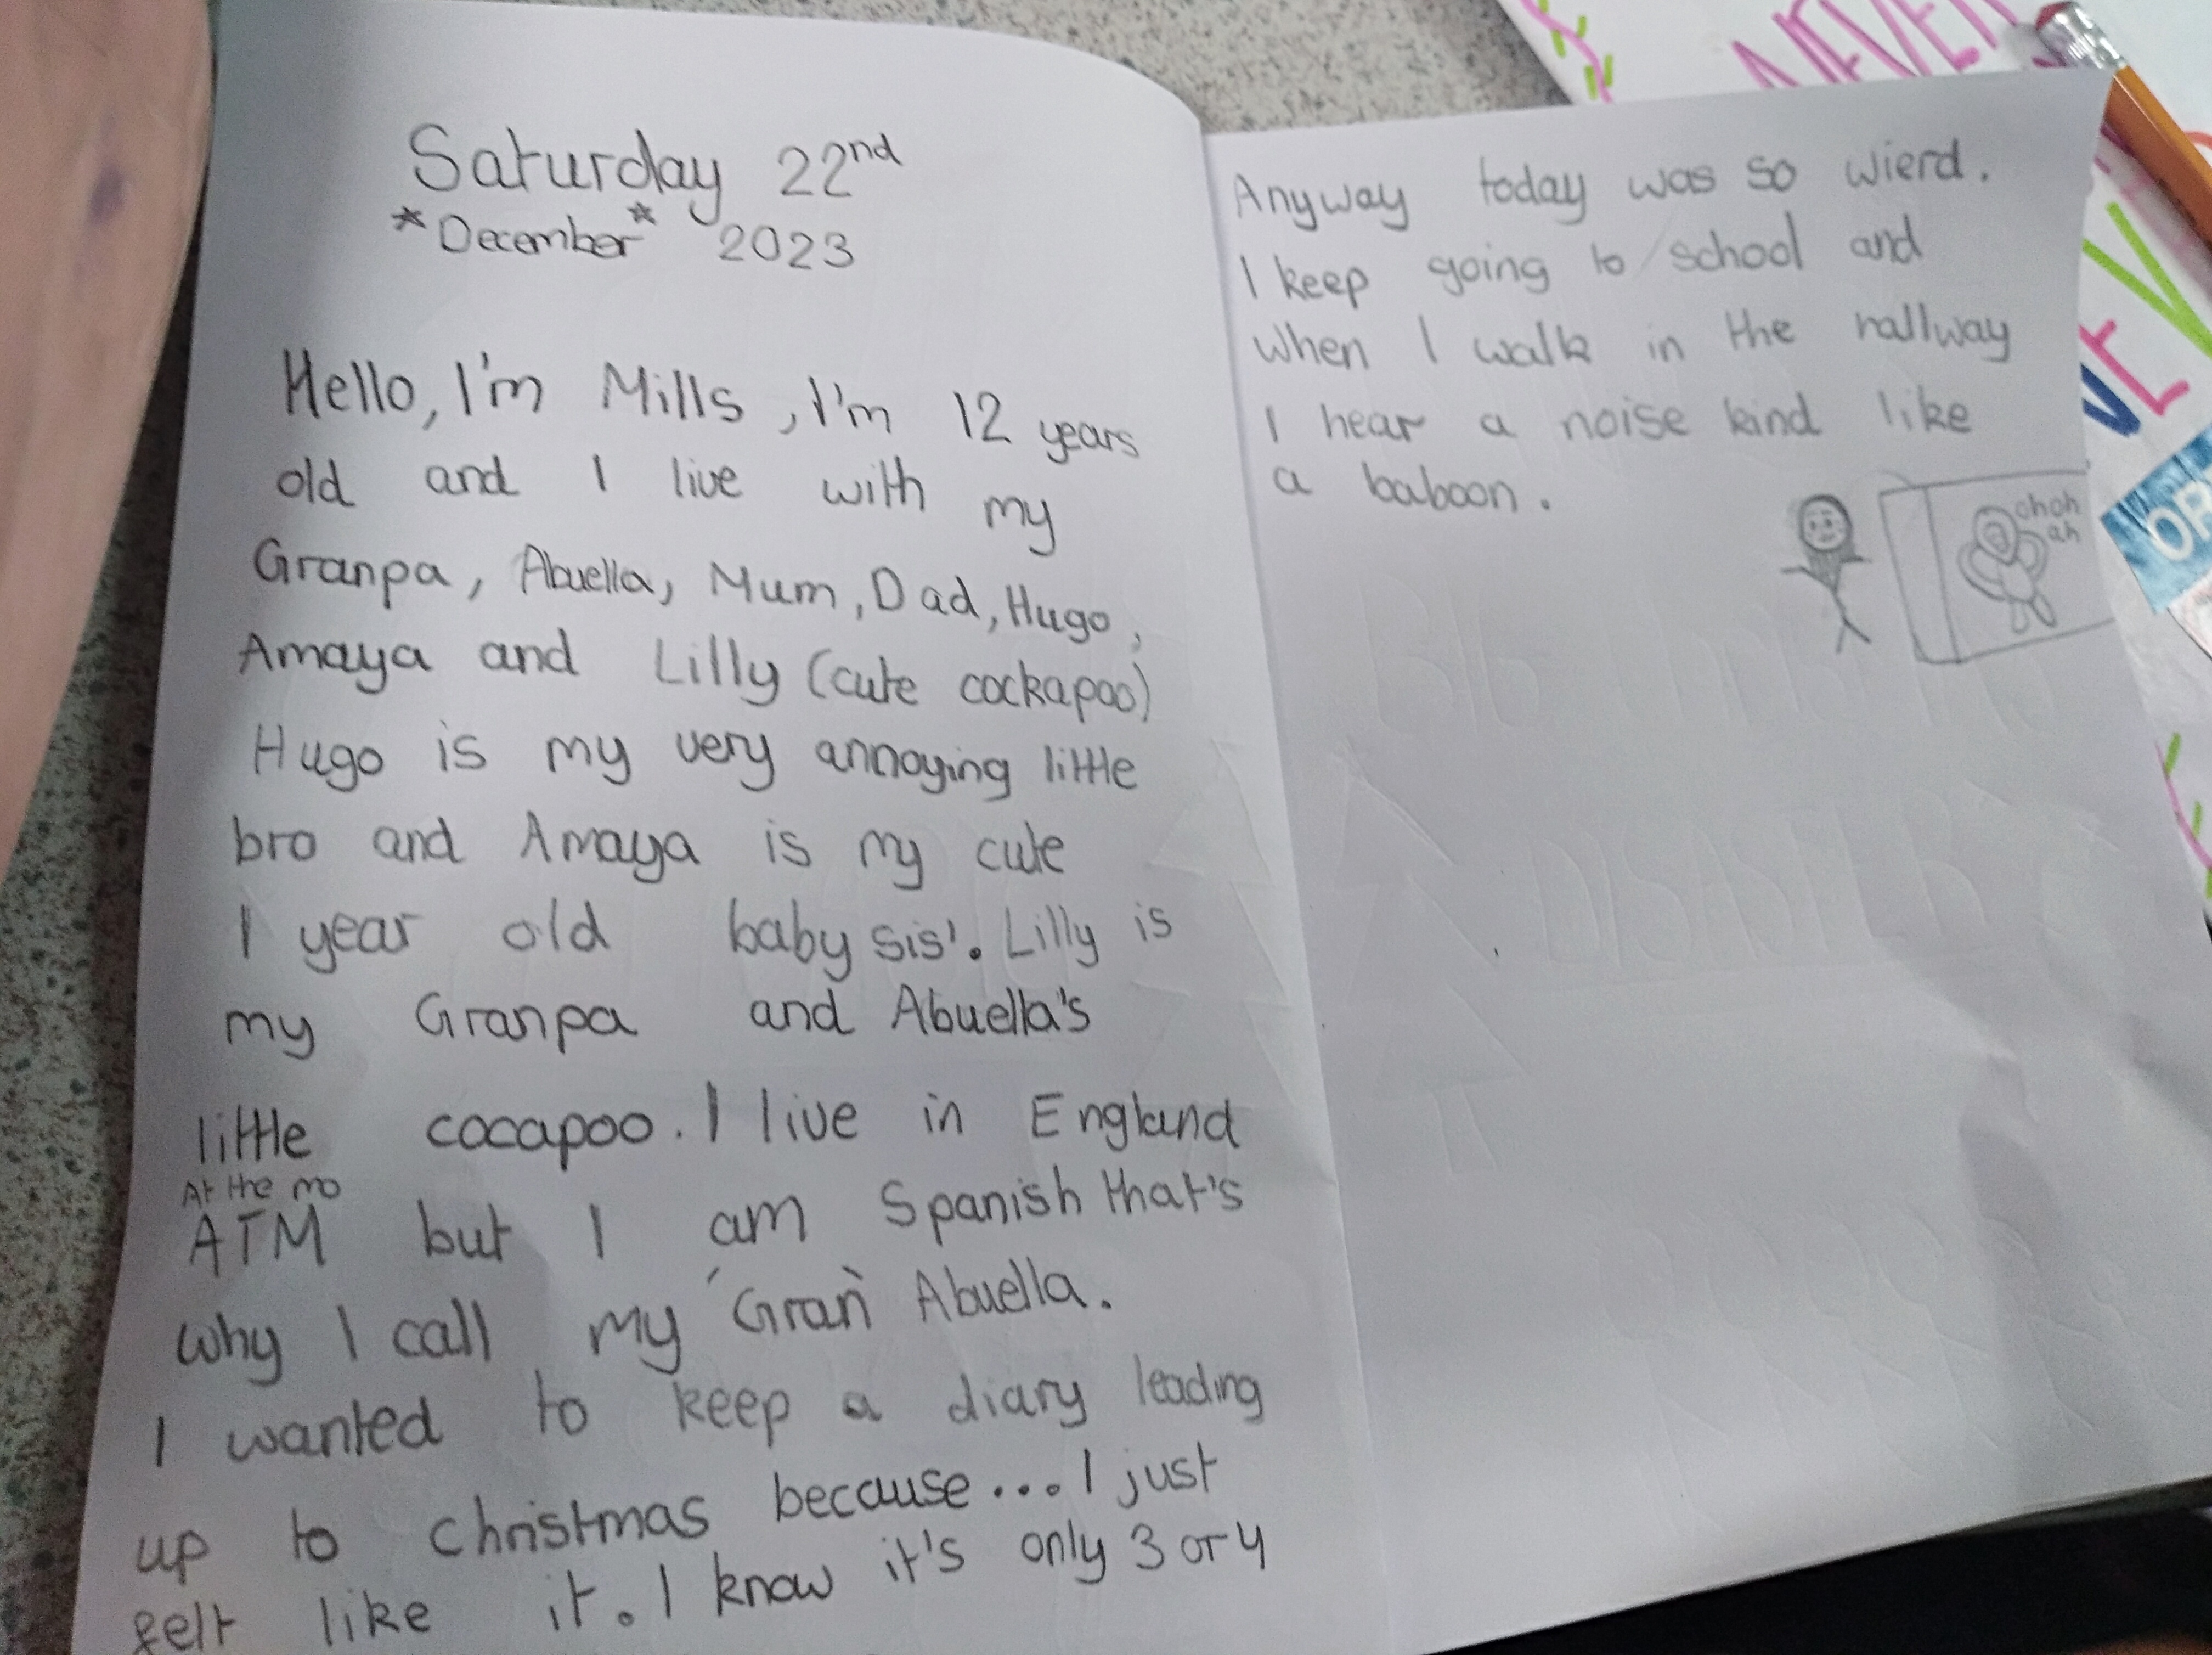 Saturday 22nd
*December* 2023
Hello, I'm Mills, I'm 12 years
old and I live with my
Granpa, Abuella, Mum, Dad, Hugo,
Amaya and Lilly (cute cockapoo)
Hugo is my very annoying little
bro and Amaya is my cute
1 year old baby sis'. Lilly is
my Granpa and Abuella's
little cocapoo. I live in England
At the mo
ATM but I am Spanish that's
why I call my 'Gran' Abuella.
I wanted to keep a diary leading
up to christmas because... I just
felt like it. I know it's only 3 or 4
Anyway today was so wierd.
I keep going to school and
when I walk in the hallway
I hear a noise kind like
a baboon.
ohoh
ah
NEVER
VE
OR